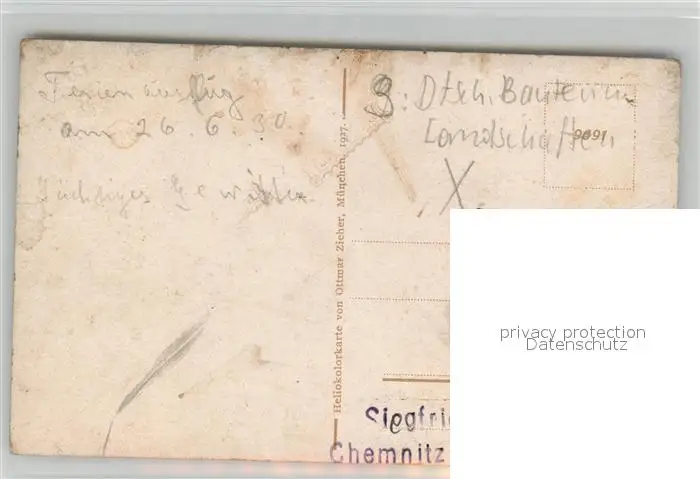 Ferienausflug
am 26.6.30.
Tüchtiges Gewitter
Heliokolorkarte von Ottmar Zieher, München, 1927.
S: Dtsch. Bauten in
Landschaften
X.
privacy protection
Datenschutz
Siegfri
Chemnitz